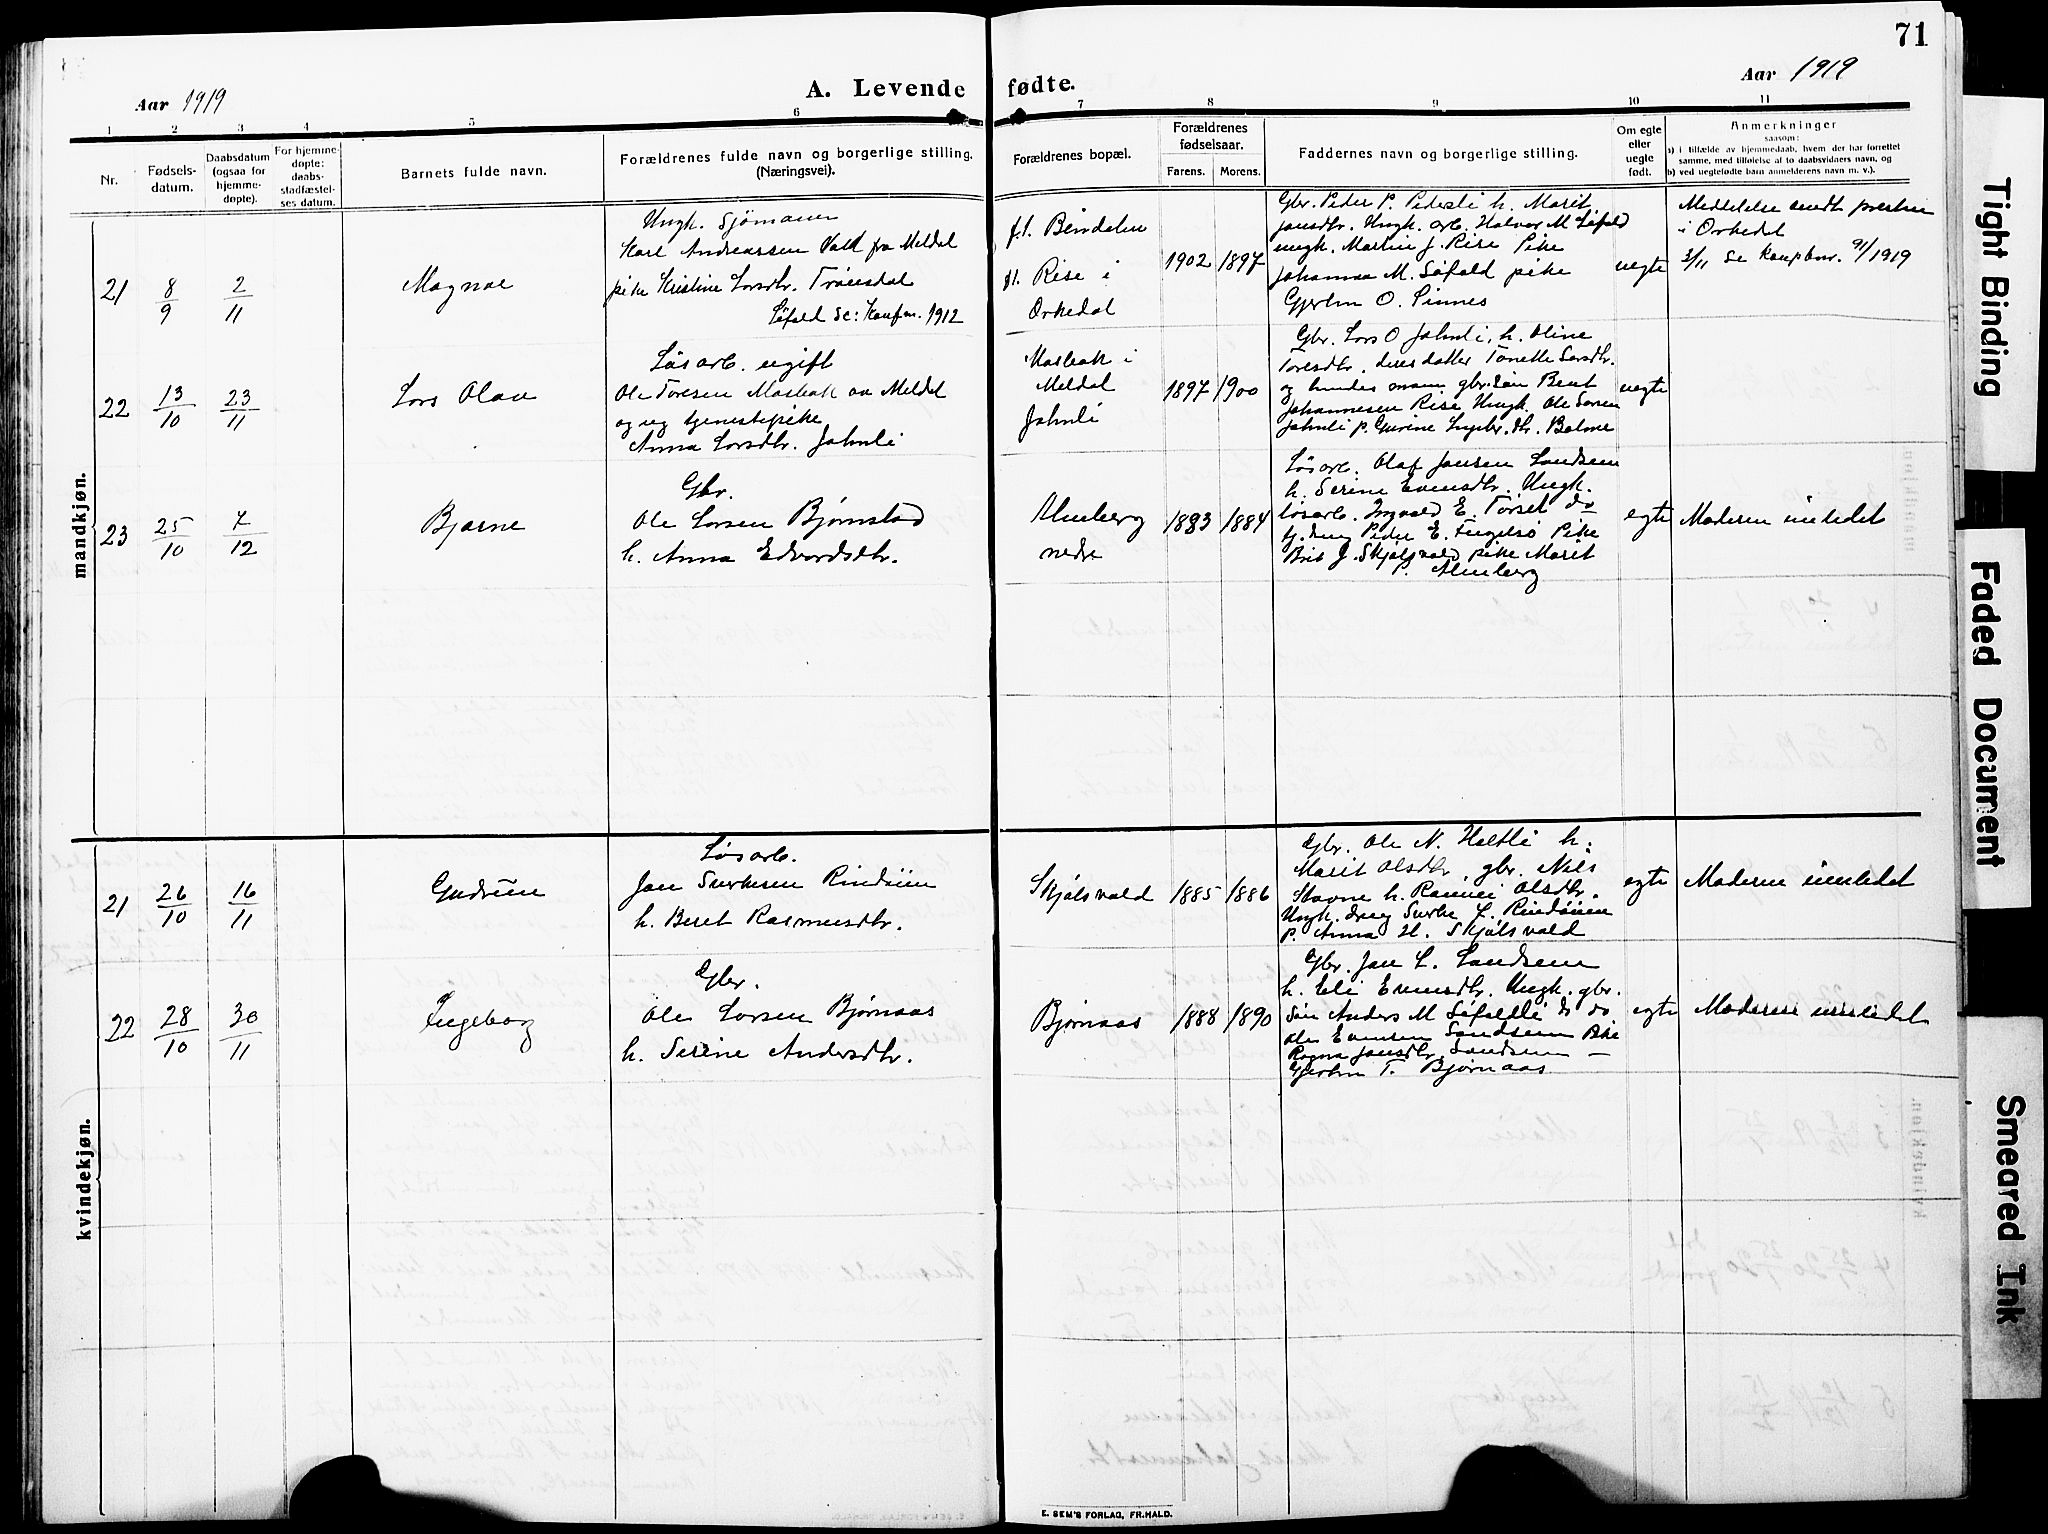 71
Aar 1919
A. Levende fødte.
Aar 1919
1 2 3 4 5 6 7 8 9 10 11
Nr.
Fødsels-
datum.
Daabsdatum
(ogsaa for
hjemme-
døpte).
For hjemme-
døpte:
daabs-
stadfæstel-
ses datum.
Barnets fulde navn.
Forældrenes fulde navn og borgerlige stilling.
(Næringsvei).
Forældrenes bopæl.
Forældrenes
fødselsaar.
Farens. Morens.
Faddernes navn og borgerlige stilling.
Om egte
eller
uegte
født.
Anmerkninger
saasom:
a) i tilfælde av hjemmedaab, hvem der har forrettet
samme, med tilføielse af to daabsvidners navn, og
b) ved uegtefødte barn anmelderens navn m. v.).
mandkjøn.
21
8/9
2/11
Magnar
Ungk. Sjømann
Karl Andreassen Vall fra Meldal
pike Kristine Larsdtr. Trønsdal
Løfald se: Konfm. 1912
f.f. Bendalen
ff. Rise i
Orkedal
1902 1897
Gbr. Peder P. Pedersli h. Marit
Jonsdtr. Ungk. arb. Halvor M Løfald
ungk. Martin J. Rise Pike
Johanna M. Løfald pike
Gjertru O. Sinnes
uegte
Meddelelse sendt presten
i Orkedal
3/11 se kopibnr. 91/1919
22
13/10
23/11
Lars Olav
Løsarb. ugift
Ole Toresen Masbak av Meldal
og ug tjenestepike
Anna Larsdtr. Jahnli
Masbak i
Meldal
Jahnli
1897 1900
Gbr. Lars O Jahnli, h. Oline
Toresdtr., deres datter Tonette Larsdtr.
og hendes mann gbr. søn Bent
Johannesen Rise Ungk. Ole Larsen
Jahnli p. Gurine Ingebr. dtr. Bolme
uegte
23
25/10
7/12
Bjarne
Gbr.
Ole Larsen Bjørnstad
h. Anna Edvardsdtr.
Almberg
nedre
1883 1884
Løsarb. Olaf Jansen Landsem
h. Serine Evensdtr. Ungk.
løsarb. Ingvald E. Torset do
tj. dreng Peder E. Fugelsø Pike
Brit J. Skjølsvold pike Marit
P. Almberg
egte
Moderen innledet
kvindekjøn.
21
26/10
16/11
Gudrun
Løsarb.
Jon Sivertsen Rindunn
h. Beret Rasmusdtr.
Skjølsvold
1885 1886
Gbr. Ole N. Holtli h.
Marit Olsdtr, gbr. Nils
Stavne h. Ragnei Olsdtr.
Ungk. dreng Sivert L. Rindunn
p. Anna H. Skjølsvold
egte
Moderen innledet
22
28/10
30/11
Ingeborg
Gbr.
Ole Larsen Bjørnaas
h. Serine Andersdtr.
Bjørnaas
1888 1890
Gbr. Jon L. Landsem
h. Eli Evensdtr. Ungk. gbr.
søn Anders M Løfaldli & do
Ole Evensen Landsem Pike
Ragna Jonsdtr. Landsem —
Gjertru T. Bjørnaas
egte
Moderen innledet
E. SEM'S FORLAG, FR.HALD.
Tight Binding
Faded Document
Smeared Ink